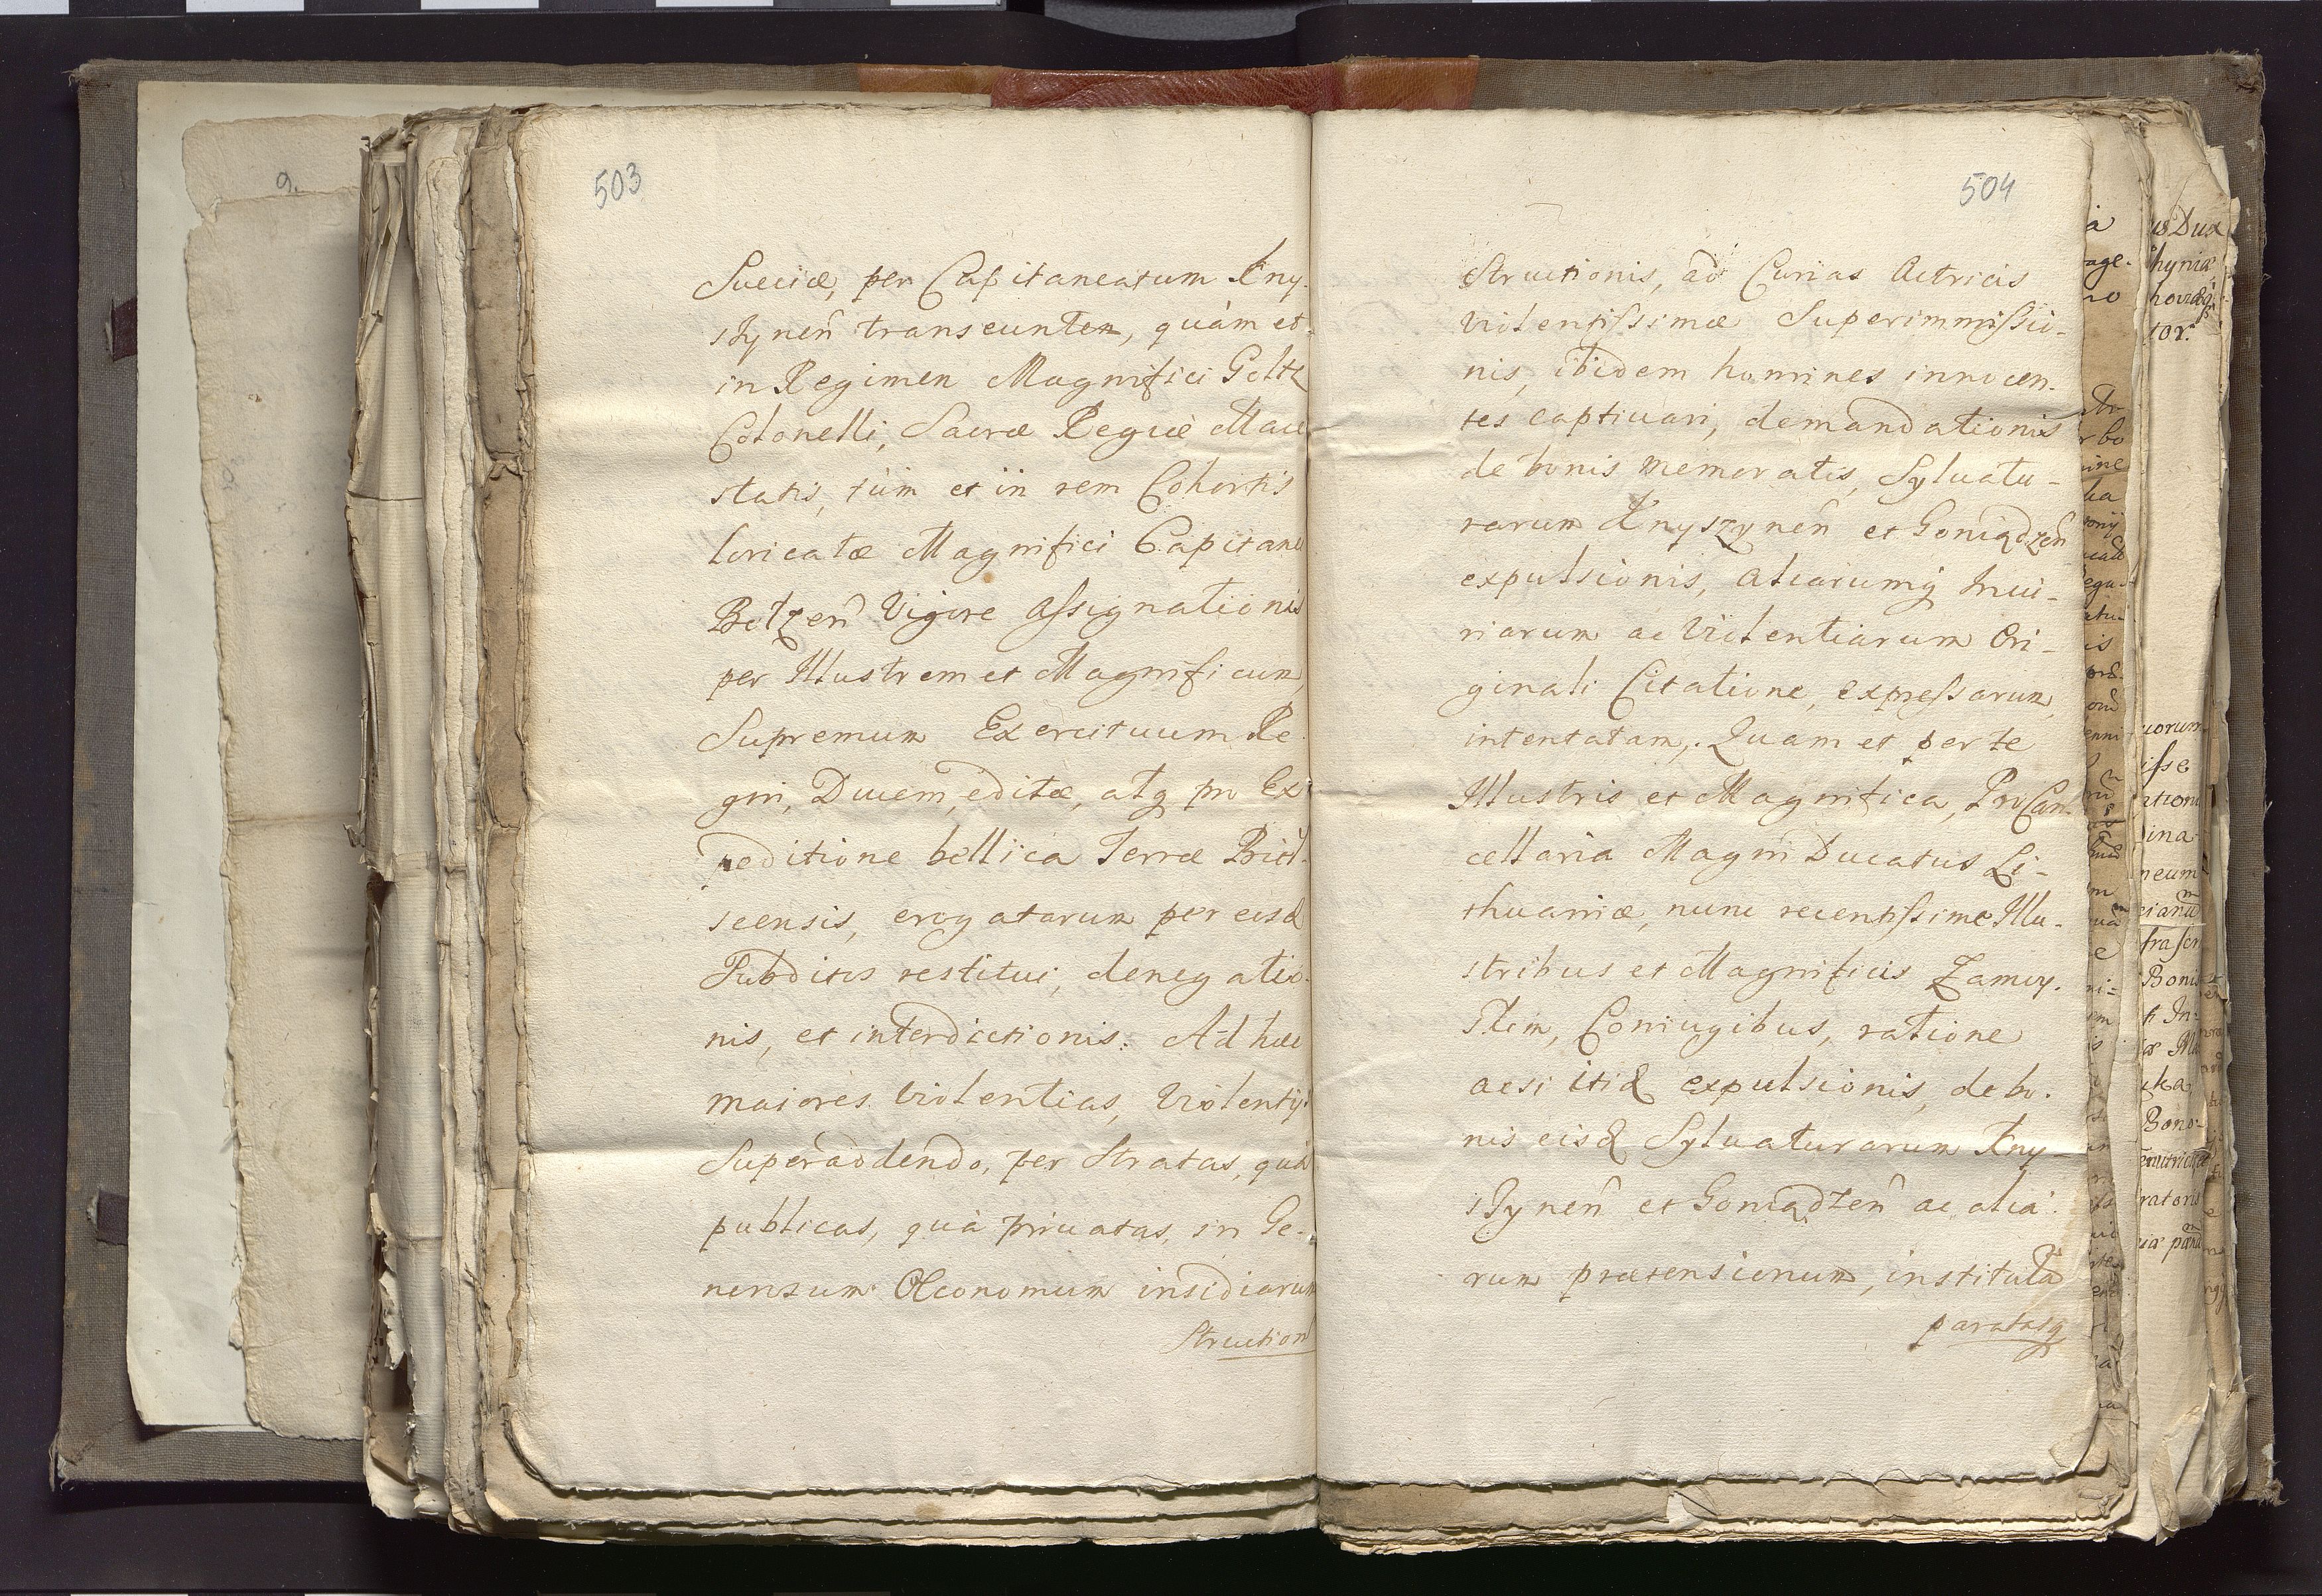 503
Sueciæ, per Capitaneatum Kny-
szynen̄ transeuntem, quàm et
in Regimen Magnifici Goltz
Colonelli, Sacræ Regiæ Maie
statis, tùm et in rem Cohortis
loricatæ Magnifici Capitanei
Belzen̄ Vigore Assignationis
per Illustrem et Magnificum
Supremum Exercituum Re-
gni, Ducem, editæ, atq pro Ex
peditione bellica Terræ Biel-
scensis, erogatarum per eosd
Subditos restitui, denegatio-
nis, et interdictionis. Ad hæc
maiores Violentias, Violentijs
Superaddendo, per Stratas, quà
publicas, quà priuatas, in Ge-
nerosum Oeconomum insidiarum
Struction
504
Structionis, ad Curias Actricis
Violentissimæ Superimmissio-
nis, ibidem homines innocen-
tes captiuari, demandationis
de bonis memoratis, Syluatu-
rarum Knyszynen̄ et Goniądzen̄
expulsionis, aliarumq Iniu-
riarum ac Violentiarum Ori-
ginali Citatione, expressarum,
intentatam,. Quam et per te
Illustris et Magnifica, ProCan-
cellaria Magni Ducatus Li-
thuaniæ, nunc recentissime Illu-
stribus et Magnificis Zamoy-
skim, Coniugibus, ratione
acsi itid expulsionis, de bo-
nis eisd Syluaturarum Kny-
szynen̄ et Goniądzen̄ ac alia-
rum prætensionum, institutas
paratasq